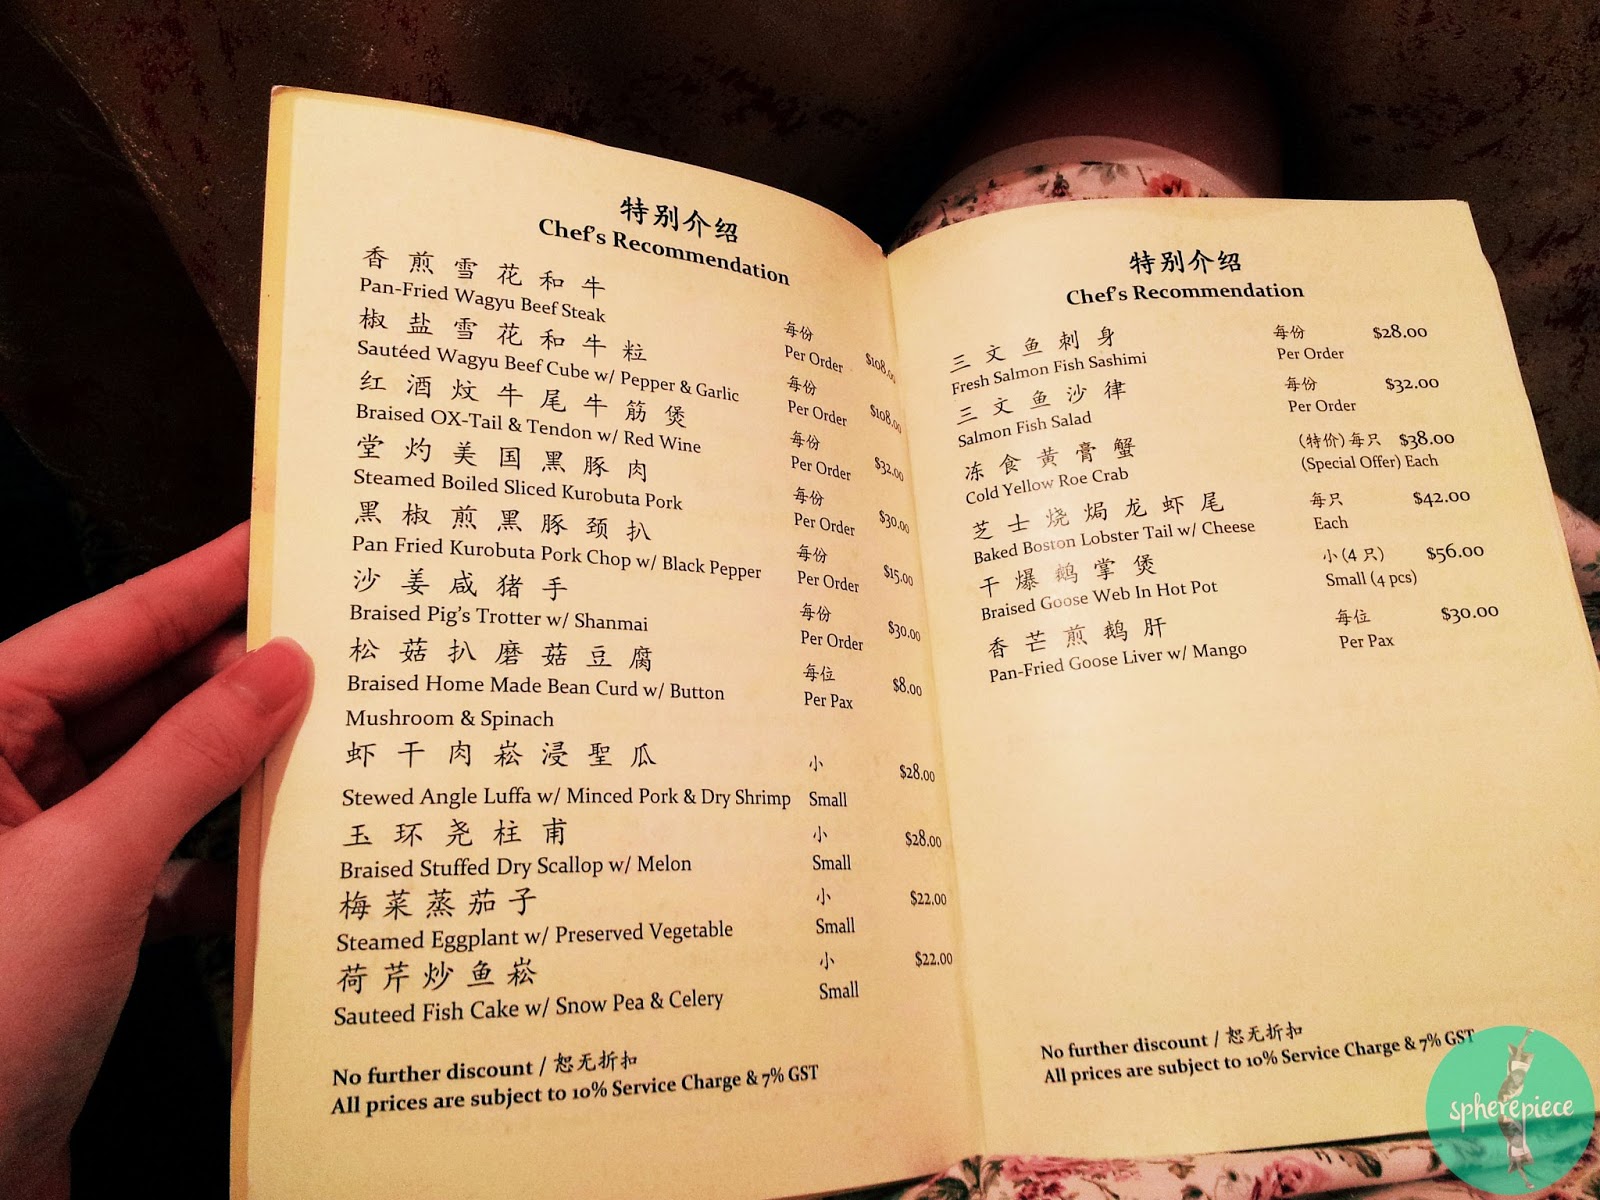 特别介绍
Chef's Recommendation
香煎雪花和牛
Pan-Fried Wagyu Beef Steak
每份 $108.00
Per Order
椒盐雪花和牛粒
Sautéed Wagyu Beef Cube w/ Pepper & Garlic
每份 $108.00
Per Order
红酒炆牛尾牛筋煲
Braised OX-Tail & Tendon w/ Red Wine
每份 $32.00
Per Order
堂灼美国黑豚肉
Steamed Boiled Sliced Kurobuta Pork
每份 $30.00
Per Order
黑椒煎黑豚颈扒
Pan Fried Kurobuta Pork Chop w/ Black Pepper
每份 $15.00
Per Order
沙姜咸猪手
Braised Pig's Trotter w/ Shanmai
每份 $30.00
Per Order
松菇扒磨菇豆腐
Braised Home Made Bean Curd w/ Button
Mushroom & Spinach
每位 $8.00
Per Pax
虾干肉崧浸聖瓜
Stewed Angle Luffa w/ Minced Pork & Dry Shrimp
小 $28.00
Small
玉环尧柱甫
Braised Stuffed Dry Scallop w/ Melon
小 $28.00
Small
梅菜蒸茄子
Steamed Eggplant w/ Preserved Vegetable
小 $22.00
Small
荷芹炒鱼崧
Sauteed Fish Cake w/ Snow Pea & Celery
小 $22.00
Small
No further discount / 恕无折扣
All prices are subject to 10% Service Charge & 7% GST
特别介绍
Chef's Recommendation
三文鱼刺身
Fresh Salmon Fish Sashimi
每份 $28.00
Per Order
三文鱼沙律
Salmon Fish Salad
每份 $32.00
Per Order
冻食黄膏蟹
Cold Yellow Roe Crab
(特价) 每只 $38.00
(Special Offer) Each
芝士烧焗龙虾尾
Baked Boston Lobster Tail w/ Cheese
每只 $42.00
Each
干爆鹅掌煲
Braised Goose Web In Hot Pot
小 (4 只) $56.00
Small (4 pcs)
香芒煎鹅肝
Pan-Fried Goose Liver w/ Mango
每位 $30.00
Per Pax
No further discount / 恕无折扣
All prices are subject to 10% Service Charge & 7% GST
spherepiece